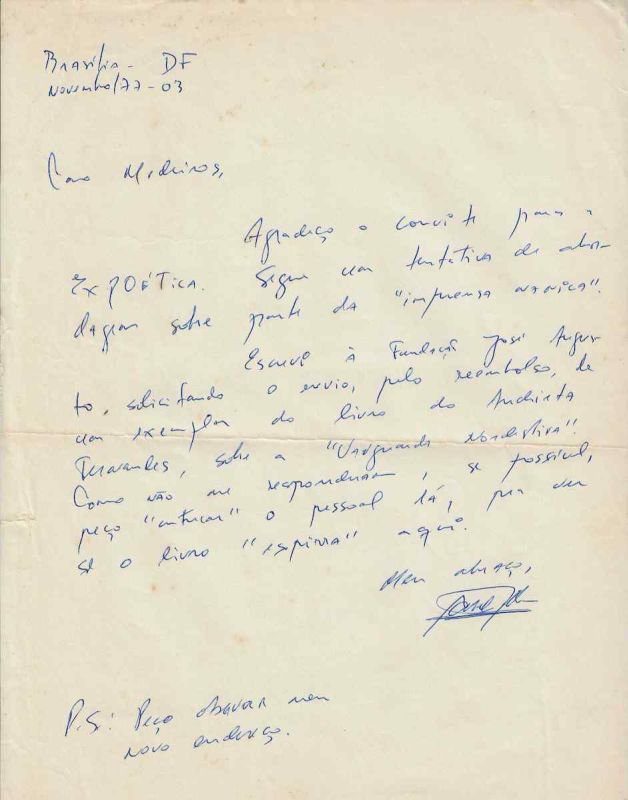 Brasília - DF
Novembro/77 - 03
Caro Medeiros,
Agradeço o convite para a
Expoética. Segue um tentativa de abor
dagem sobre parte da "imprensa nanica".
Escrevi à Fundação José Augus
to, solicitando o envio, pelo reembolso, de
um exemplar do livro do Anchieta
Fernandes, sobre a "Vanguarda Nordestina".
Como não me responderam, se possível,
peço "cutucar" o pessoal lá, pra ver
se o livro "espirra" aqui.
Meu abraço,
P.S: Peço observar meu
novo endereço.